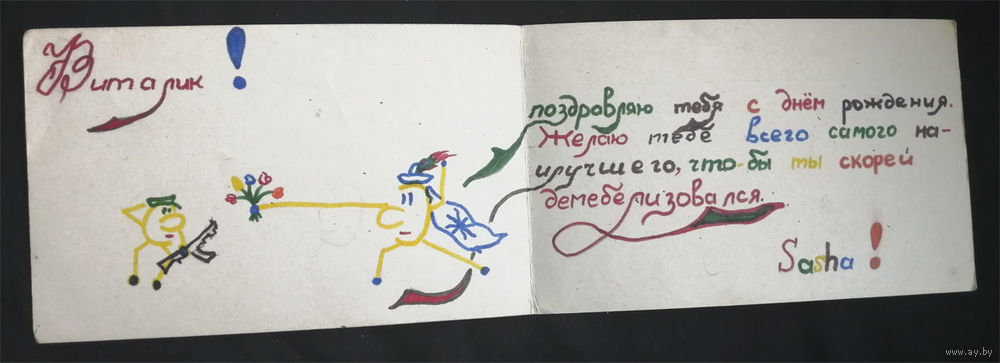 Виталик!
поздровляю тебя с днём рождения.
Желаю тебе всего самого на-
илучшего, что-бы ты скорей
демебелизовался.
Sasha!
www.ay.by